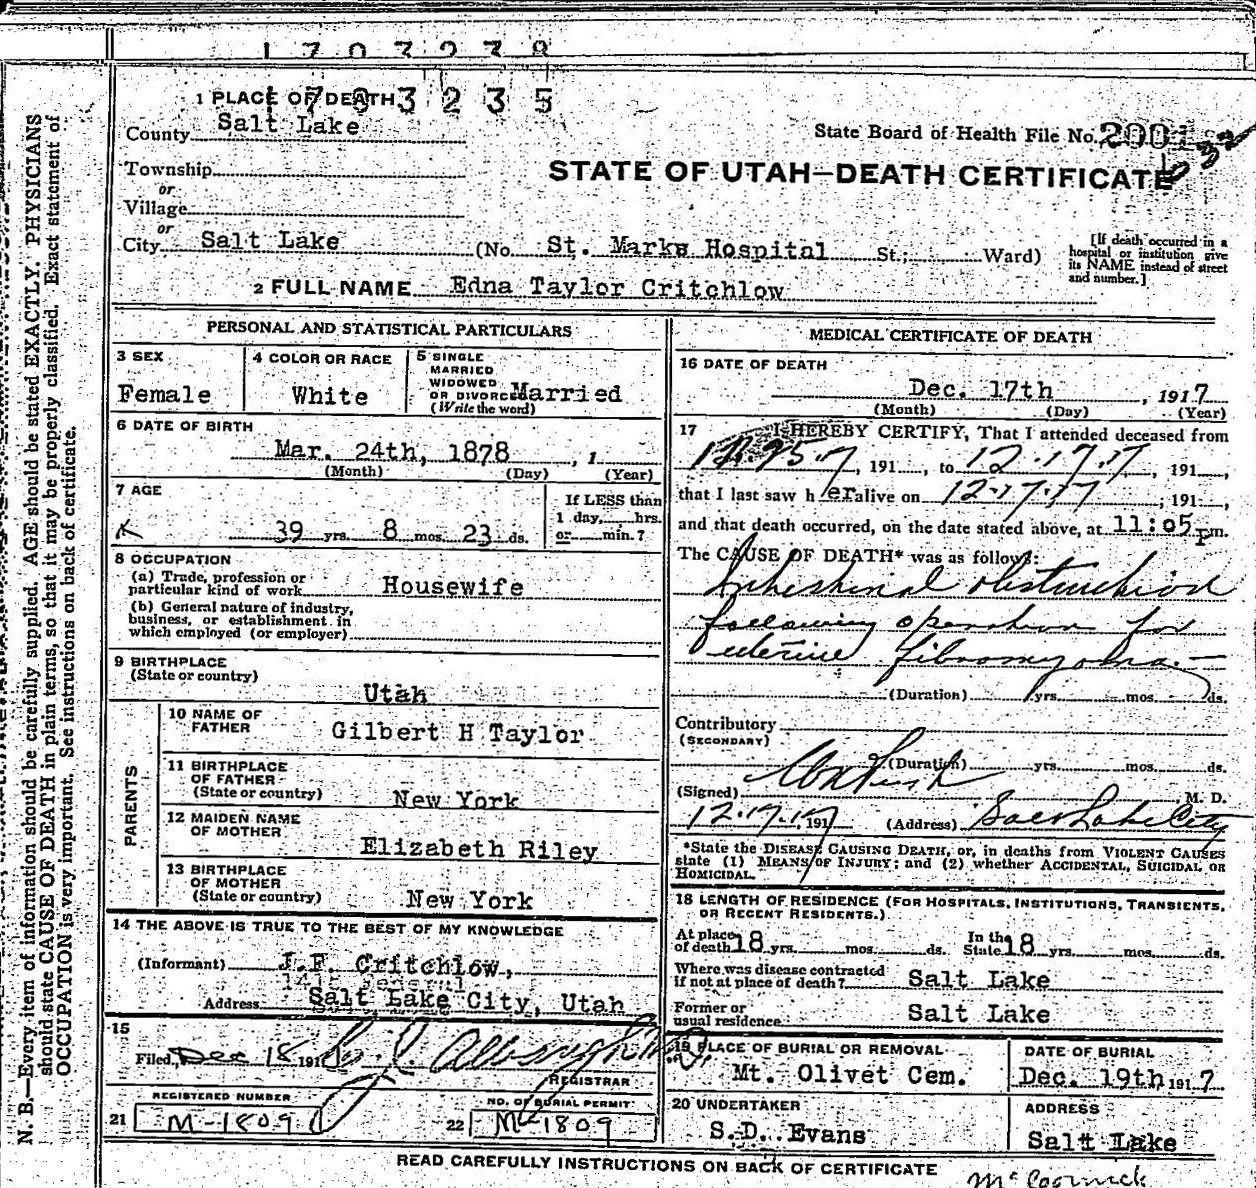 1703238
1 PLACE OF DEATH 1703235
County Salt Lake
State Board of Health File No. 200
Township
or
Village
or
STATE OF UTAH—DEATH CERTIFICATE
City Salt Lake (No. St. Marks Hospital St.; Ward)
[If death occurred in a hospital or institution give its NAME instead of street and number.]
2 FULL NAME Edna Taylor Critchlow
PERSONAL AND STATISTICAL PARTICULARS
3 SEX
Female
4 COLOR OR RACE
White
5 SINGLE
MARRIED
WIDOWED
OR DIVORCED Married
(Write the word)
6 DATE OF BIRTH
Mar. 24th, 1878, 1
(Month) (Day) (Year)
7 AGE
39 yrs. 8 mos. 23 ds.
If LESS than
1 day, hrs.
or min.?
8 OCCUPATION
(a) Trade, profession or
particular kind of work Housewife
(b) General nature of industry,
business, or establishment in
which employed (or employer)
9 BIRTHPLACE
(State or country)
Utah
PARENTS
10 NAME OF
FATHER Gilbert H Taylor
11 BIRTHPLACE
OF FATHER
(State or country) New York
12 MAIDEN NAME
OF MOTHER
Elizabeth Riley
13 BIRTHPLACE
OF MOTHER
(State or country) New York
14 THE ABOVE IS TRUE TO THE BEST OF MY KNOWLEDGE
(Informant) J.F. Critchlow,
Address Salt Lake City, Utah
15
Filed, Dec 18 191
REGISTRAR
REGISTERED NUMBER
21 M-1809
NO. OF BURIAL PERMIT
22 M-1809
MEDICAL CERTIFICATE OF DEATH
16 DATE OF DEATH
Dec. 17th, 1917
(Month) (Day) (Year)
17 I HEREBY CERTIFY, That I attended deceased from
, 191, to 12.17.17, 191,
that I last saw her alive on 12.17.17; 191,
and that death occurred, on the date stated above, at 11:05 pm.
The CAUSE OF DEATH* was as follows:
Intestinal obstruction
following operation for
uterine fibromyoma.—
(Duration) yrs. mos. ds.
Contributory
(SECONDARY)
(Duration) yrs. mos. ds.
(Signed) M. D.
12.17.17, 191 (Address) Salt Lake City
*State the DISEASE CAUSING DEATH, or, in deaths from VIOLENT CAUSES
state (1) MEANS OF INJURY; and (2) whether ACCIDENTAL, SUICIDAL OR
HOMICIDAL.
18 LENGTH OF RESIDENCE (FOR HOSPITALS, INSTITUTIONS, TRANSIENTS,
OR RECENT RESIDENTS.)
At place
of death 18 yrs. mos. ds. In the
State 18 yrs. mos. ds.
Where was disease contracted
if not at place of death? Salt Lake
Former or
usual residence Salt Lake
19 PLACE OF BURIAL OR REMOVAL
Mt. Olivet Cem.
DATE OF BURIAL
Dec. 19th 1917
20 UNDERTAKER
S.D. Evans
ADDRESS
Salt Lake
READ CAREFULLY INSTRUCTIONS ON BACK OF CERTIFICATE
McCornick
N. B.—Every item of information should be carefully supplied. AGE should be stated EXACTLY. PHYSICIANS
should state CAUSE OF DEATH in plain terms, so that it may be properly classified. Exact statement of
OCCUPATION is very important. See instructions on back of certificate.